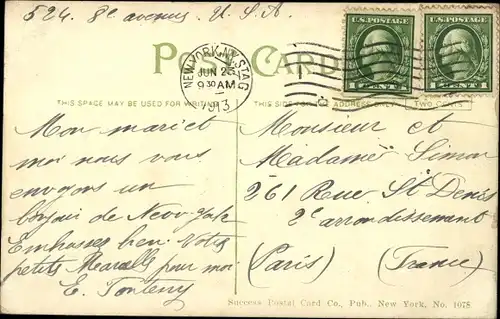 524. 8e avenue. U.S.A.
POST CARD
NEW YORK, N.Y. STA. G
JUN 23
9 30 AM
1913
U.S. POSTAGE
1 CENT 1
U.S. POSTAGE
1
THIS SPACE MAY BE USED FOR WRITING
THIS SIDE FOR ADDRESS ONLY
TWO CENTS
Mon mari et
moi nous vous
envoyons un
bonjour de New-York
Embrassez bien Votre
petits pour moi
E.
Monsieur et
Madame Simon
261 Rue St Denis
2e arrondissement
(Paris) (France)
Success Postal Card Co., Pub., New York, No. 1078.